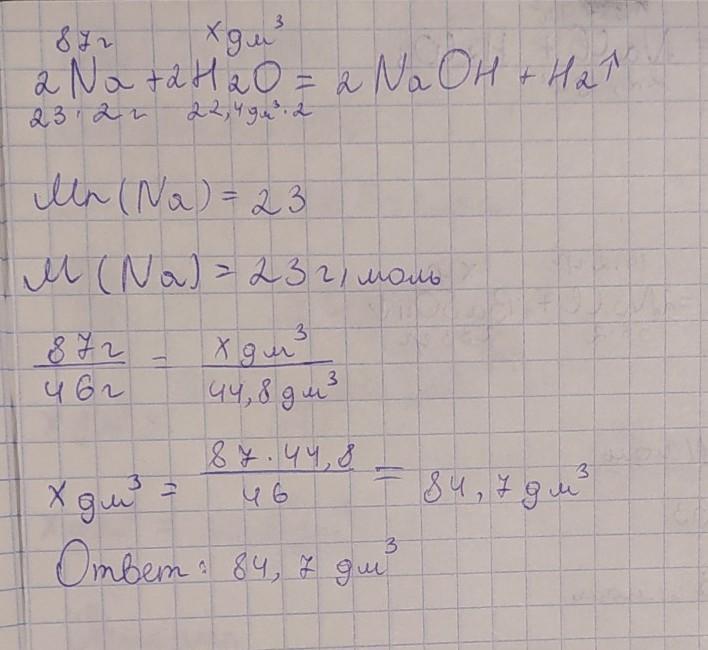 87г х дм³
2Na + 2H2O = 2NaOH + H2↑
23·2г 22,4дм³·2
Mr(Na) = 23
M(Na) = 23г/моль
87г/46г = х дм³/44,8дм³
х дм³ = 87·44,8/46 = 84,7дм³
Ответ: 84,7 дм³